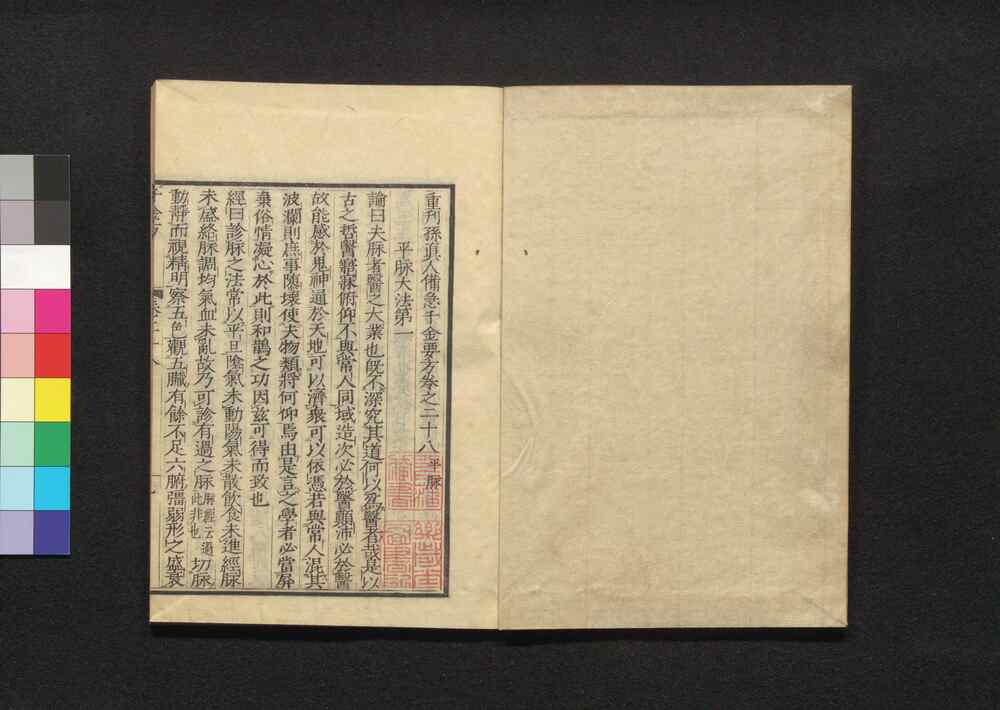 重刋孫真人備急千金要方卷之二十八 平脉
平脉大法第一
論曰夫脉者醫之大業也旣不深究其道何以爲醫者哉是以
古之哲醫寤寐俯仰不與常人同域造次必於醫顛沛必於醫
故能感於鬼神通於天地可以濟衆可以依憑若與常人混其
波瀾則庶事隳壞使夫物類將何仰焉由是言之學者必當屏
棄俗情凝心於此則和鵲之功因兹可得而致也
經曰診脉之法常以平旦陰氣未動陽氣未散飲食未進經脉
未盛絡脉調均氣血未亂故乃可診有過之脉 脉經云過此非也 切脉
動靜而視精明察五色觀五臓有餘不足六腑彊弱形之盛衰